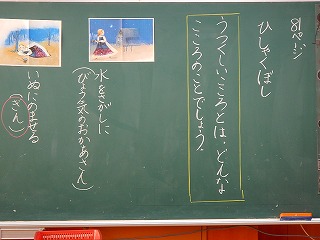 81ページ
ひしゃくぼし
うつくしいこころとは、どんな
こころのことでしょう。
水をさがしに
(びょう気のおかあさん)
いぬにのませる
(ぎん)